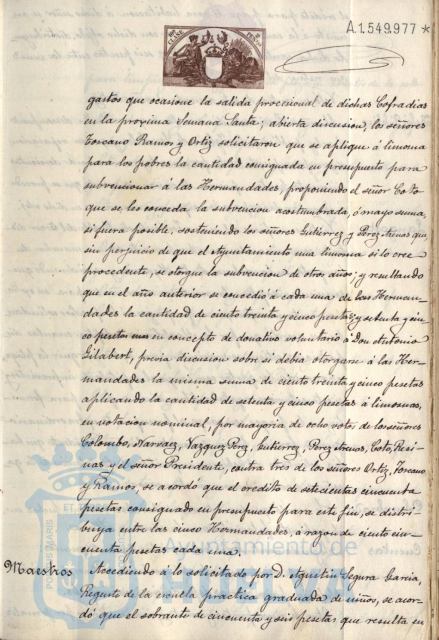 A.1.549.977 *
gastos que ocasione la salida procesional de dichas Cofradias
en la proxima Semana Santa; abierta discusion, los señores
Toscano Ramos y Ortiz solicitaron que se aplique á limosna
para los pobres la cantidad consignada en presupuesto para
subvencionar á las Hermandades, proponiendo el señor Coto
que se les conceda la subvencion acostumbrada, ó mayo suma,
si fuera posible, sosteniendo los señores Gutierrez y Perez Arenas que
sin perjuicio de que el Ayuntamiento una limosna si lo cree
procedente, se otorgue la subvencion de otros años; y resultando
que en el año anterior se concedió á cada una de las Herman-
dades la cantidad de ciento treinta y cinco pesetas y setenta y cin-
co pesetas en concepto de donativo voluntario á Don Antonio
Gilabert, previa discusion sobre si debia otorgarse á las Her-
mandades la misma suma de ciento treinta y cinco pesetas
aplicando la cantidad de setenta y cinco pesetas á limosnas,
en votacion nominal, por mayoria de ocho votos de los señores
Colombo, Narvaez, Vazquez Perez, Gutierrez, Perez Arenas, Coto, Resi-
nas y el señor Presidente, contra tres de los señores Ortiz, Toscano
y Ramos, se acordó que el credito de setecientas cincuenta
pesetas consignado en presupuesto para este fin, se distri-
buya entre las cinco Hermandades, á razon de ciento cin-
cuenta pesetas cada una.
Ayuntamiento de
Maestros Accediendo á lo solicitado por D. Agustin Segura Garcia,
Regente de la escuela practica graduada de niños, se acor-
dó que el sobrante de cincuenta y seis pesetas que resulta en